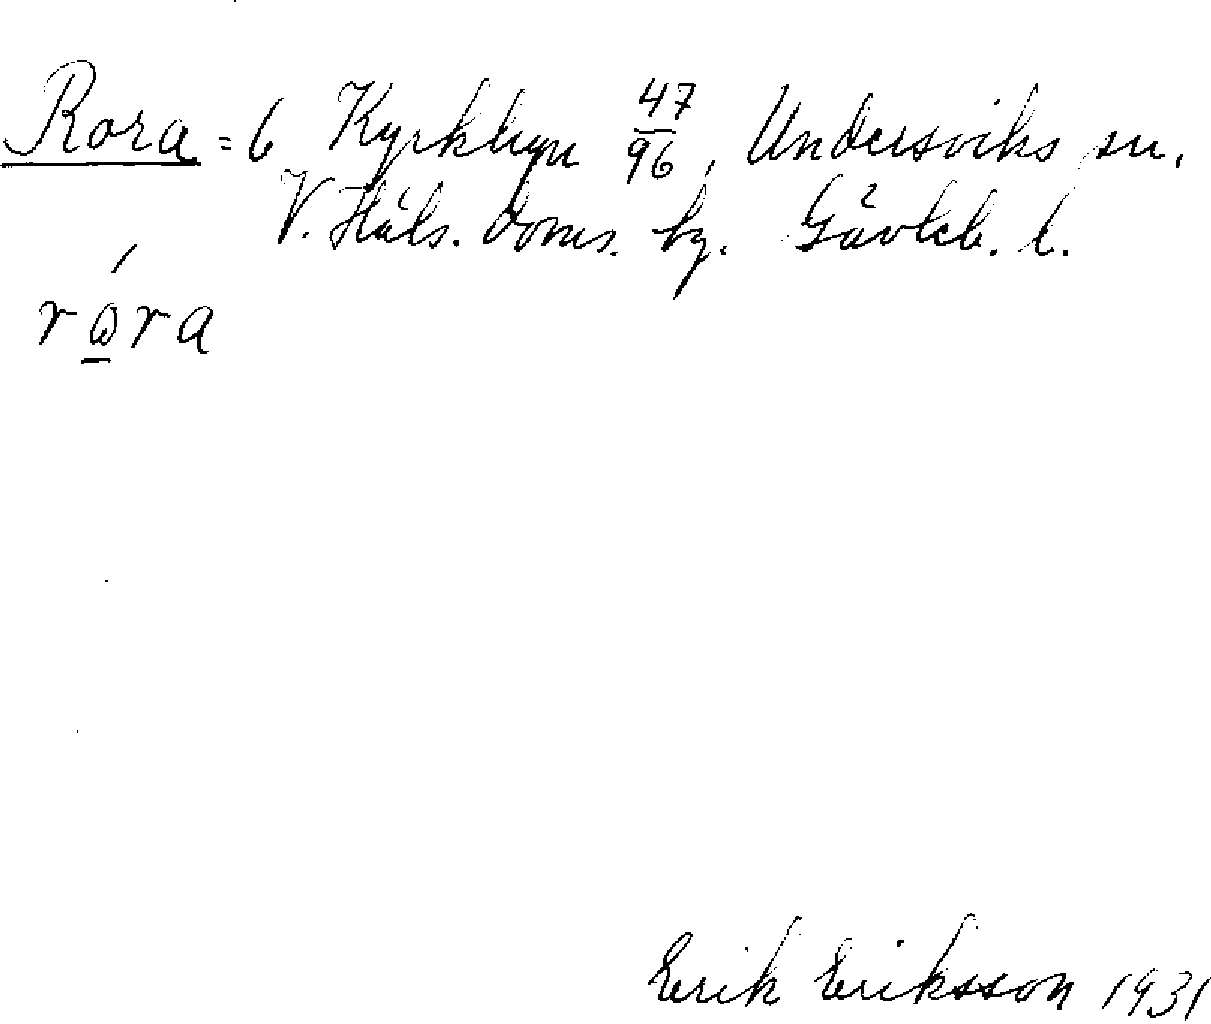 Rora = 6 Kyrkbyn 47/96, Undersviks sn.
V. Häls. doms. hg. Gävleb. l.
rora
Erik Eriksson 1931